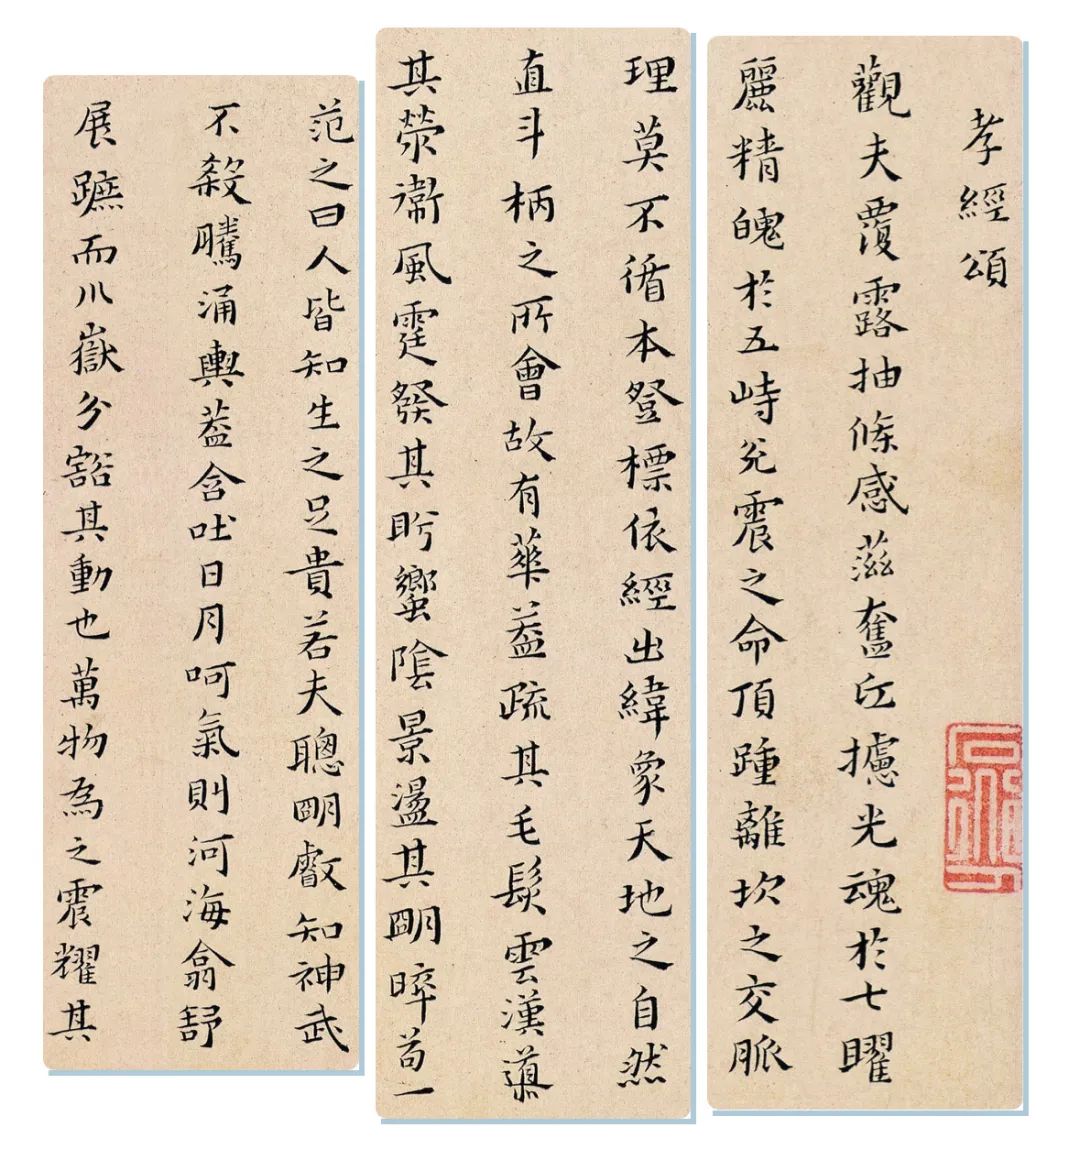 孝經頌
觀夫覆露抽條感滋奮㐀攄光魂於七曜
麗精魄於五峙兌震之命頂踵離坎之交脈
理莫不循本登標依經出緯象天地之自然
直斗柄之所會故有華蓋疏其毛髮雲漢導
其滎衛風霆發其肸蠁陰景盪其明晬苟一
范之曰人皆知生之足貴若夫聰明叡知神武
不殺騰涌輿蓋含吐日月呵氣則河海翕舒
展蹠而川嶽分豁其動也萬物為之震耀其